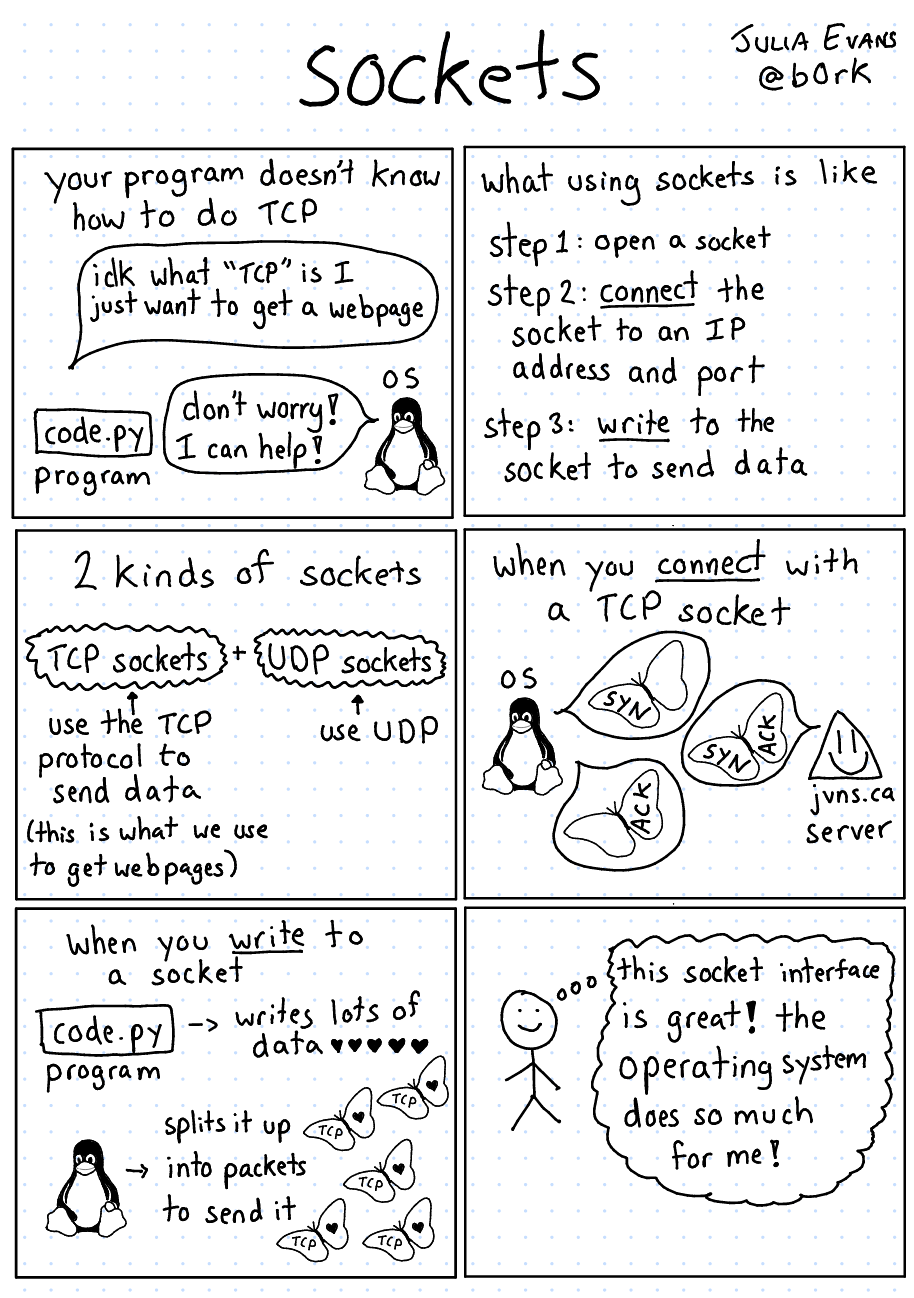 sockets
JULIA EVANS
@b0rk
your program doesn't know
how to do TCP
idk what "TCP" is I
just want to get a webpage
OS
don't worry!
I can help!
code.py
program
what using sockets is like
step 1: open a socket
step 2: connect the
socket to an IP
address and port
step 3: write to the
socket to send data
2 kinds of sockets
TCP sockets + UDP sockets
use the TCP
protocol to
send data
(this is what we use
to get webpages)
use UDP
when you connect with
a TCP socket
OS
SYN
SYN ACK
ACK
jvns.ca
server
when you write to
a socket
code.py
program
writes lots of
data ♥♥♥♥♥
splits it up
into packets
to send it
TCP ♥
TCP ♥
TCP ♥
TCP ♥
TCP ♥
this socket interface
is great! the
operating system
does so much
for me!